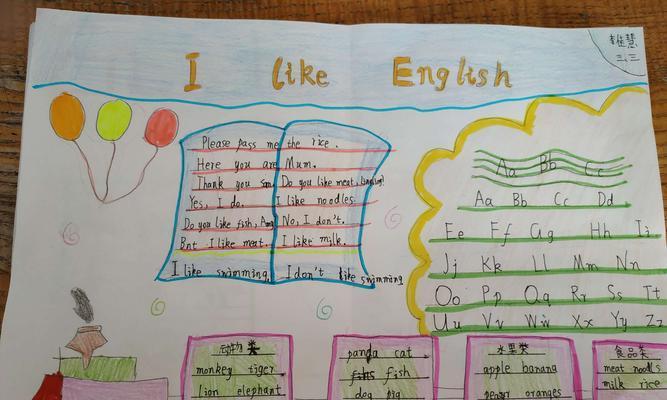 I like English
三、三
Please pass me the rice.
Here you are Mum.
Thank you Sam. Do you like meat,
Yes, I do. I like noodles.
Do you like fish, Amy No, I don't.
Bnt I like meat. I like milk.
I like swimming. I don't like swimming
Aa Bb Cc
Aa Bb Cc Dd
Ee Ff Gg Hh Ii
Jj Kk Ll Mm Nn
Oo Pp Qq Rr Ss Tt
Uu Vv Ww Xx Yy Zz
动物类
monkey tiger
lion elephant
panda cat
fish
dog pig
水果类
apple banana
oranges
食品类
meat noodls
milk rice